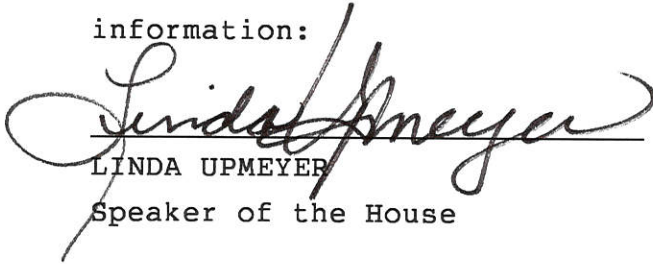 information:
Linda Upmeyer
LINDA UPMEYER
Speaker of the House